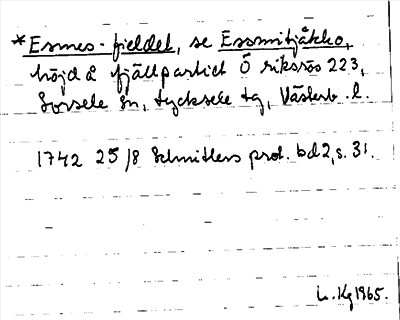 *Esmes-fieldet, se Essmitjåkko,
höjd å fjällpartiet Ö riksrös 223,
Sorsele sn, Lycksele tg, Västerb. l.
1742 25/8 Schnitlers prot. bd 2, s. 31.
L. Kg 1965.